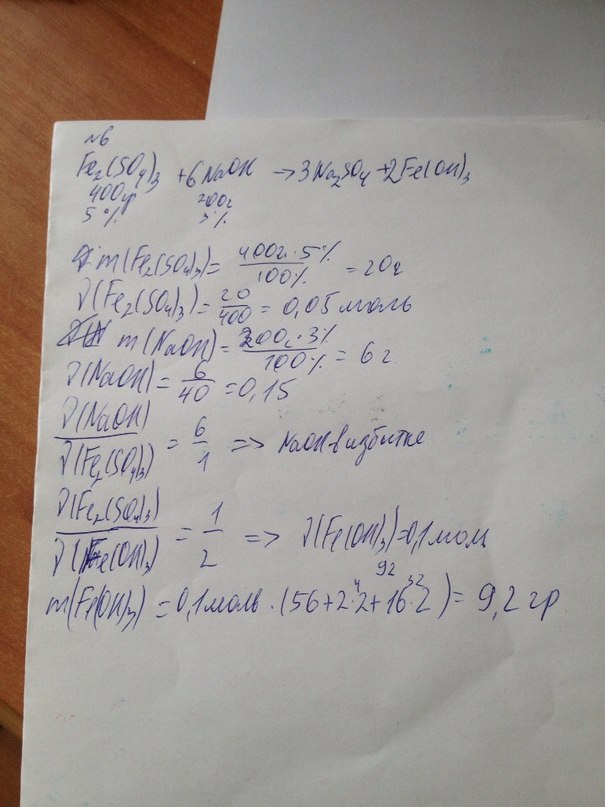 №6
Fe₂(SO₄)₃ + 6NaOH → 3Na₂SO₄ + 2Fe(OH)₃
400гр 200г
5% 3%
m(Fe₂(SO₄)₃) = 400г·5%/100% = 20г
ν(Fe₂(SO₄)₃) = 20/400 = 0,05 моль
m(NaOH) = 200г·3%/100% = 6г
ν(NaOH) = 6/40 = 0,15
ν(NaOH)/ν(Fe₂(SO₄)₃) = 6/1 => NaOH в избытке
ν(Fe₂(SO₄)₃)/ν(Fe(OH)₃) = 1/2 => ν(Fe(OH)₃) = 0,1 моль
92
4 32
m(Fe(OH)₃) = 0,1моль · (56+2·2+16·2) = 9,2 гр